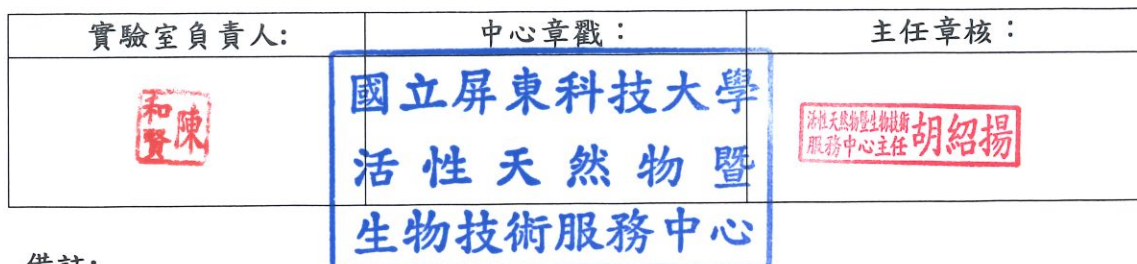 實驗室負責人:
中心章戳：
主任章核：
陳和賢
國立屏東科技大學
活性天然物暨
生物技術服務中心
活性天然物暨生物技術
服務中心主任 胡紹揚
備註: